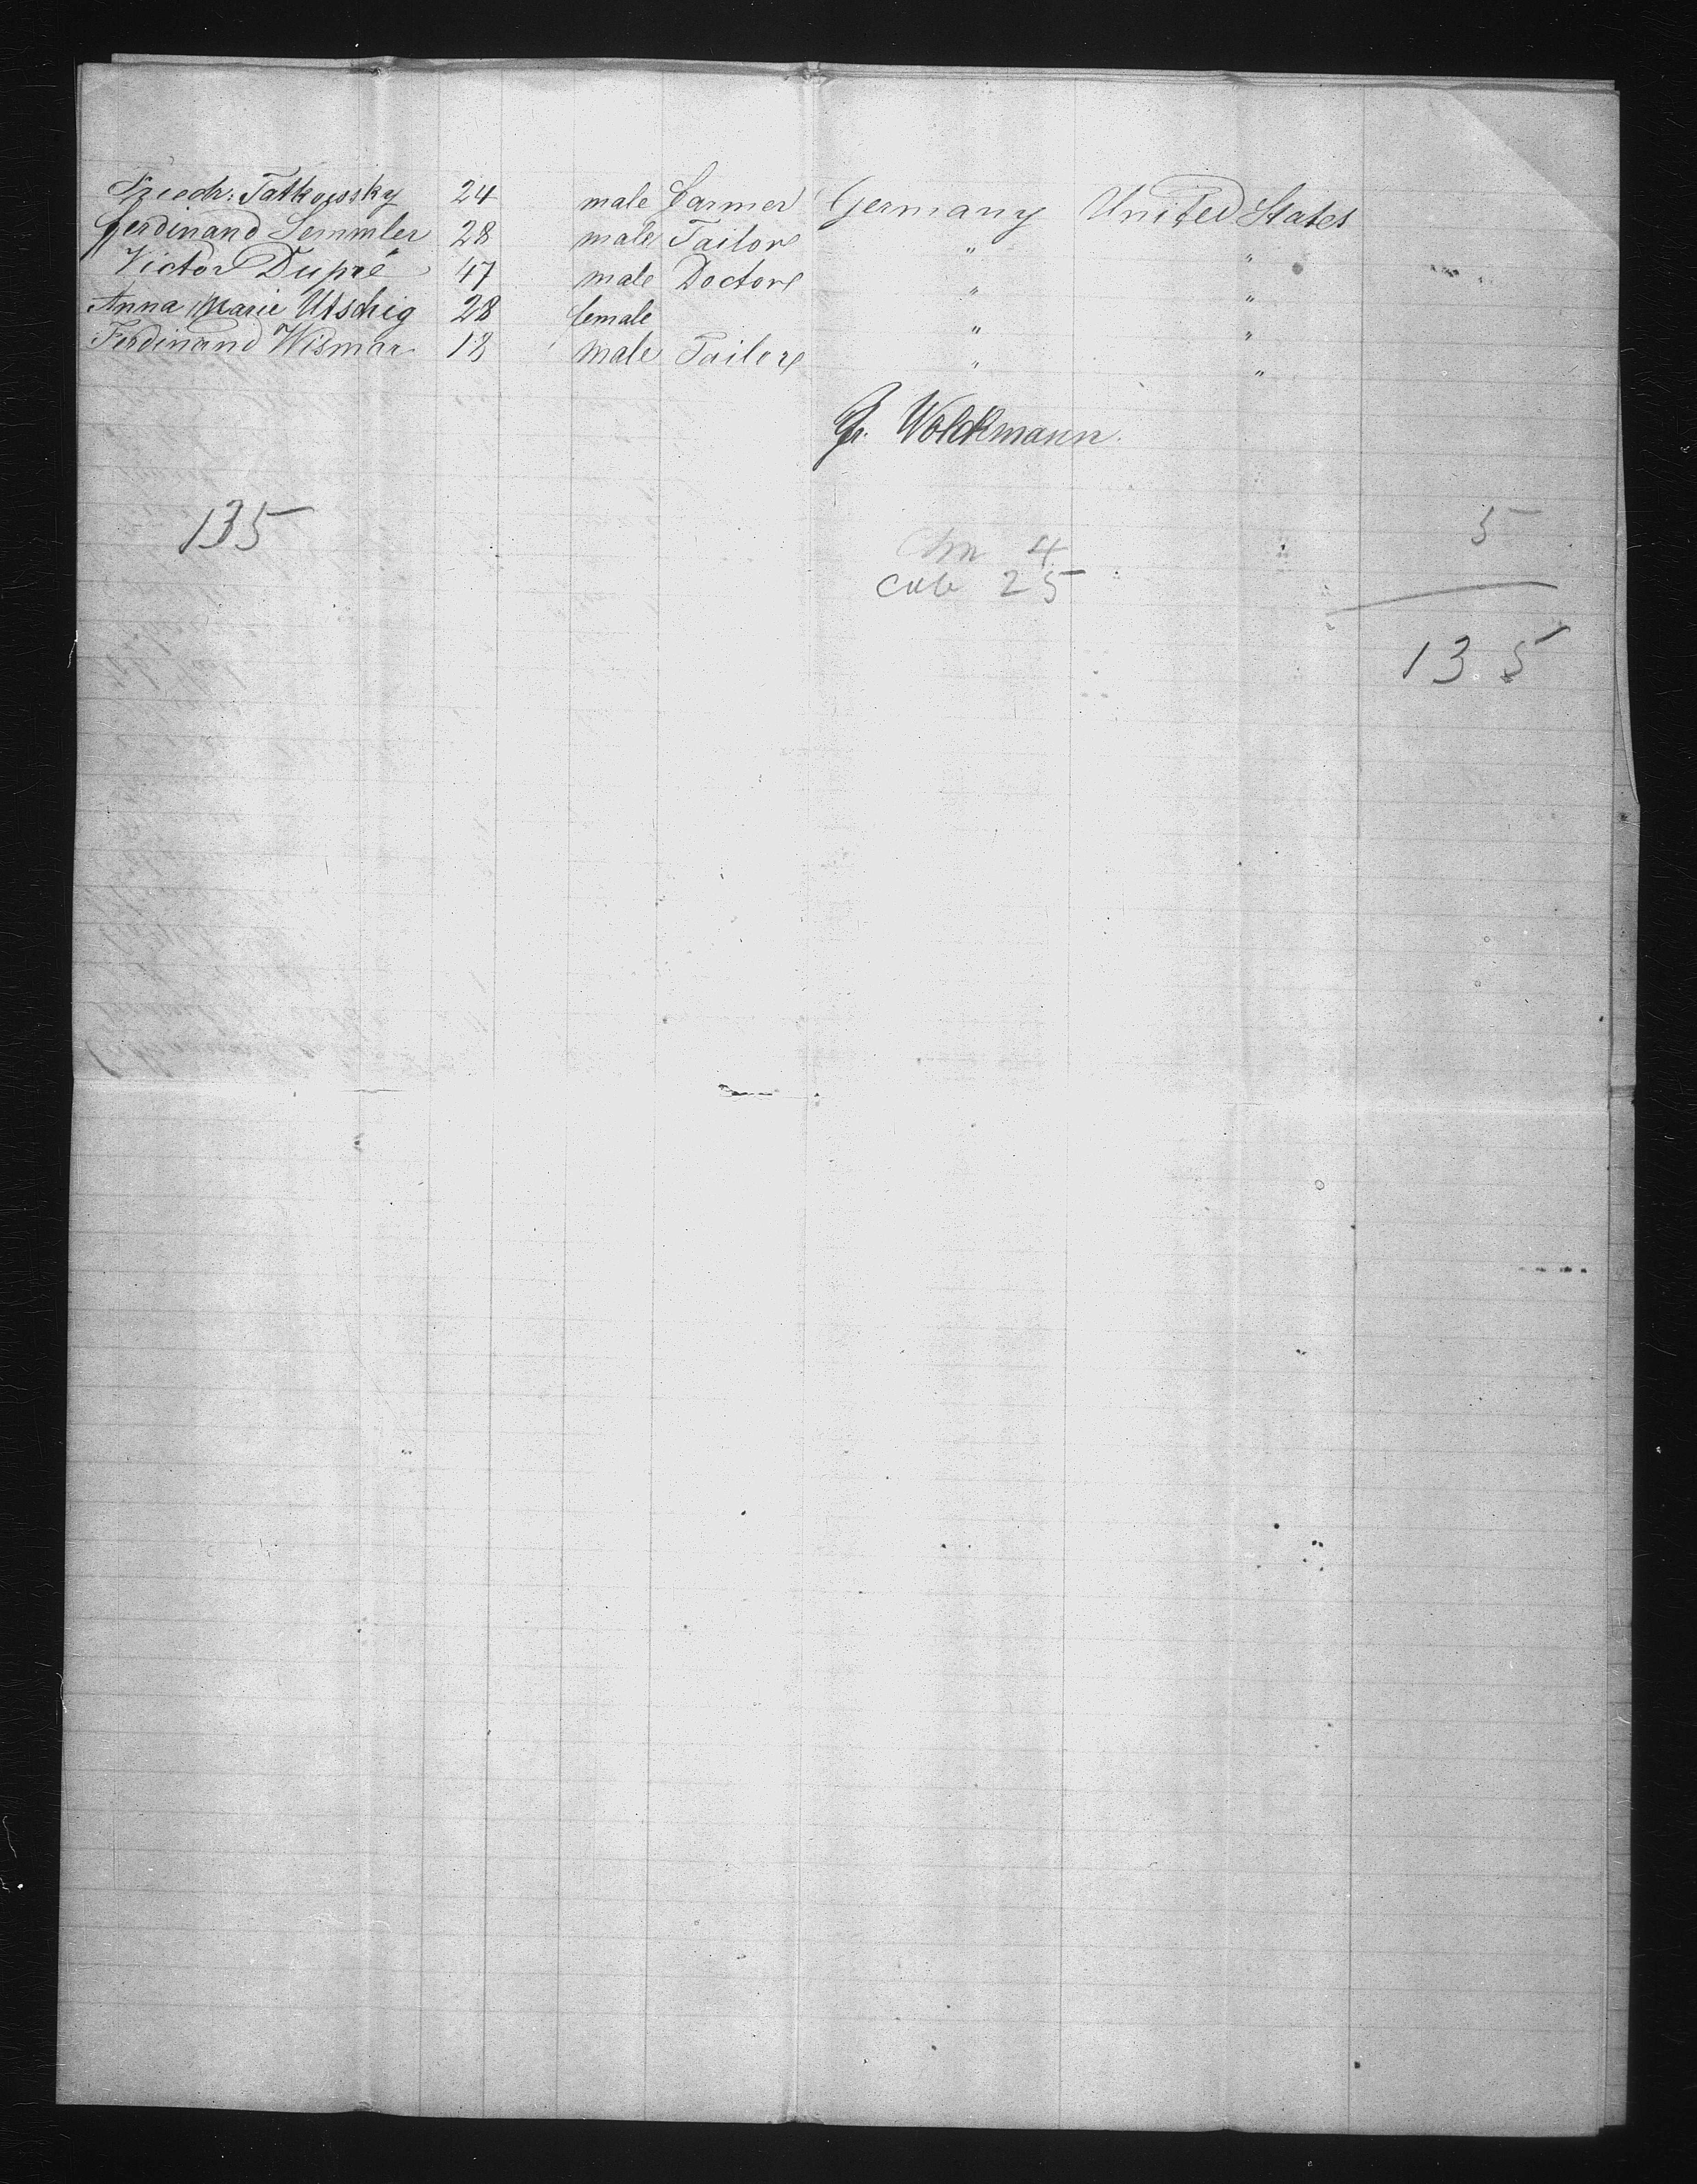 Friedr: Tatkowsky 24 male farmer Germany United States
Ferdinand Semmler 28 male Tailor " "
Victor Dupré 47 male Doctor " "
Anna Marie Utschig 28 female " "
Ferdinand Wismar 18 male Tailor " "
Wolckmann.
135
5
4
cab 25
135